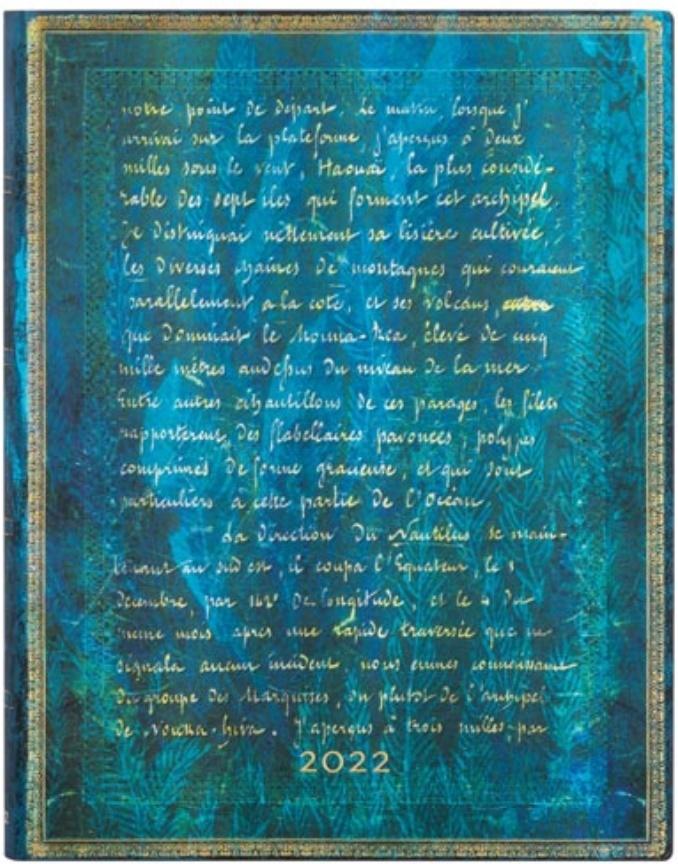 notre point de départ. Le matin, lorsque j'
arrivai sur la plateforme, j'aperçus à deux
milles sous le vent, Haouaï, la plus considé-
rable des sept îles qui forment cet archipel.
Je distinguai nettement sa lisière cultivée,
les diverses chaînes de montagnes qui couraient
parallèlement à la côte, et ses volcans,
que dominait le Mouna-Kea, élevé de cinq
mille mètres audessus du niveau de la mer.
Entre autres échantillons de ces parages, les filets
rapportèrent, des flabellaires pavonées, polypes
comprimés de forme gracieuse, et qui sont
particuliers à cette partie de l'Océan.
La direction du Nautilus se main-
tenant au sud est, il coupa l'Équateur, le 1
décembre, par 142° de longitude, et le 4 du
même mois, après une rapide traversée que ne
signala aucun incident, nous eûmes connaissance
du groupe des Marquises, ou plutôt de l'archipel
de Nouka-hiva. J'aperçus à trois milles, par
2022